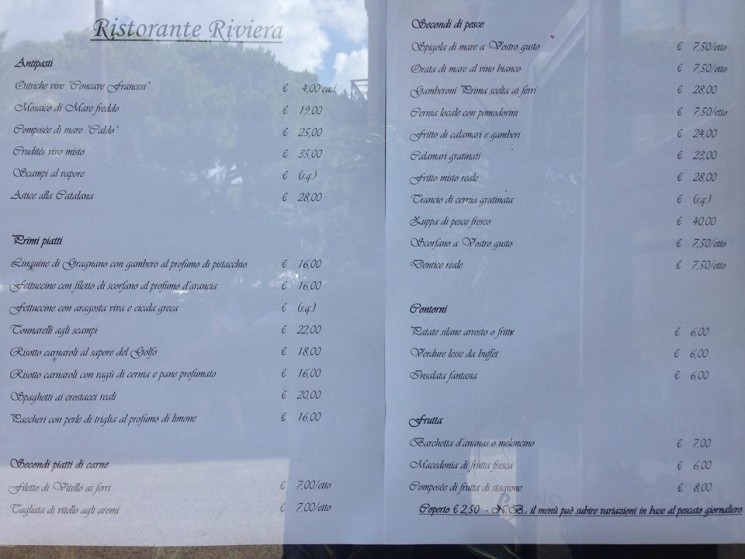 Ristorante Riviera
Antipasti
Ostriche vive "Concave Francesi" € 4,00 cad.
Mosaico di Mare freddo € 19,00
Composèe di mare "Caldo" € 25,00
Crudités vivo misto € 35,00
Scampi al vapore € (s.q.)
Astice alla Catalana € 28,00
Primi piatti
Linguine di Gragnano con gambero al profumo di pistacchio € 16,00
Fettuccine con filetto di scorfano al profumo d'arancia € 16,00
Fettuccine con aragosta viva e cicala greca € (s.q.)
Tonnarelli agli scampi € 22,00
Risotto carnaroli al sapore del Golfo € 18,00
Risotto carnaroli con ragù di cernia e pane profumato € 16,00
Spaghetti ai crostacei reali € 20,00
Paccheri con perle di triglia al profumo di limone € 16,00
Secondi piatti di carne
Filetto di Vitello ai ferri € 7,00/etto
Tagliata di vitello agli aromi € 7,00/etto
Secondi di pesce
Spigola di mare a Vostro gusto € 7,50/etto
Orata di mare al vino bianco € 7,50/etto
Gamberoni "Prima scelta ai ferri € 28,00
Cernia locale con pomodorini € 7,50/etto
Fritto di calamari e gamberi € 24,00
Calamari gratinati € 23,00
Fritto misto reale € 28,00
Trancio di cernia gratinata € (s.q.)
Zuppa di pesce fresco € 40,00
Scorfano a Vostro gusto € 7,50/etto
Dentice reale € 7,50/etto
Contorni
Patate silane arrosto o fritte € 6,00
Verdure lesse da buffet € 6,00
Insalata fantasia € 6,00
Frutta
Barchetta d'ananas o meloncino € 7,00
Macedonia di frutta fresca € 6,00
Composèe di frutta di stagione € 8,00
Coperto € 2,50 - N.B. il menù può subire variazioni in base al pescato giornaliero